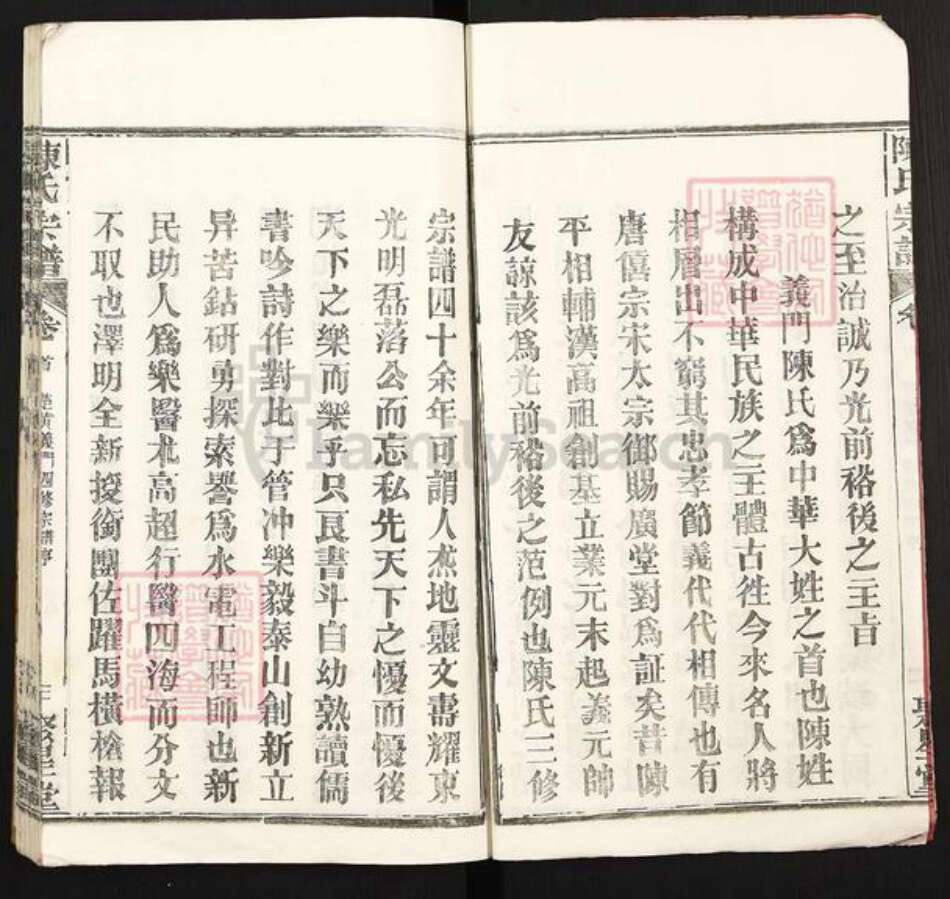 陳氏宗譜
之至治誠乃光前裕後之主旨
義門陳氏爲中華大姓之首也陳姓
構成中華民族之主體古徃今來名人將
相層出不窮其忠孝節義代代相傳也有
唐僖宗宋太宗御賜廣堂對爲証矣昔陳
平相輔漢高祖創基立業元末起義元帥
友諒該爲光前裕後之范例也陳氏三修
宗譜四十余年可謂人杰地靈文壽耀東
光明磊落公而忘私先天下之憂而憂後
天下之樂而樂乎只良書斗自幼熟讀儒
書吟詩作對比于管冲樂毅泰山創新立
异苦鉆研勇探索譽爲水電工程師也新
民助人爲樂醫术高超行醫四海而分文
不取也澤明全新授銜團佐躍馬橫槍報
陳氏宗譜
卷首
義門四修宗譜序
三
聚星堂
FamilySearch